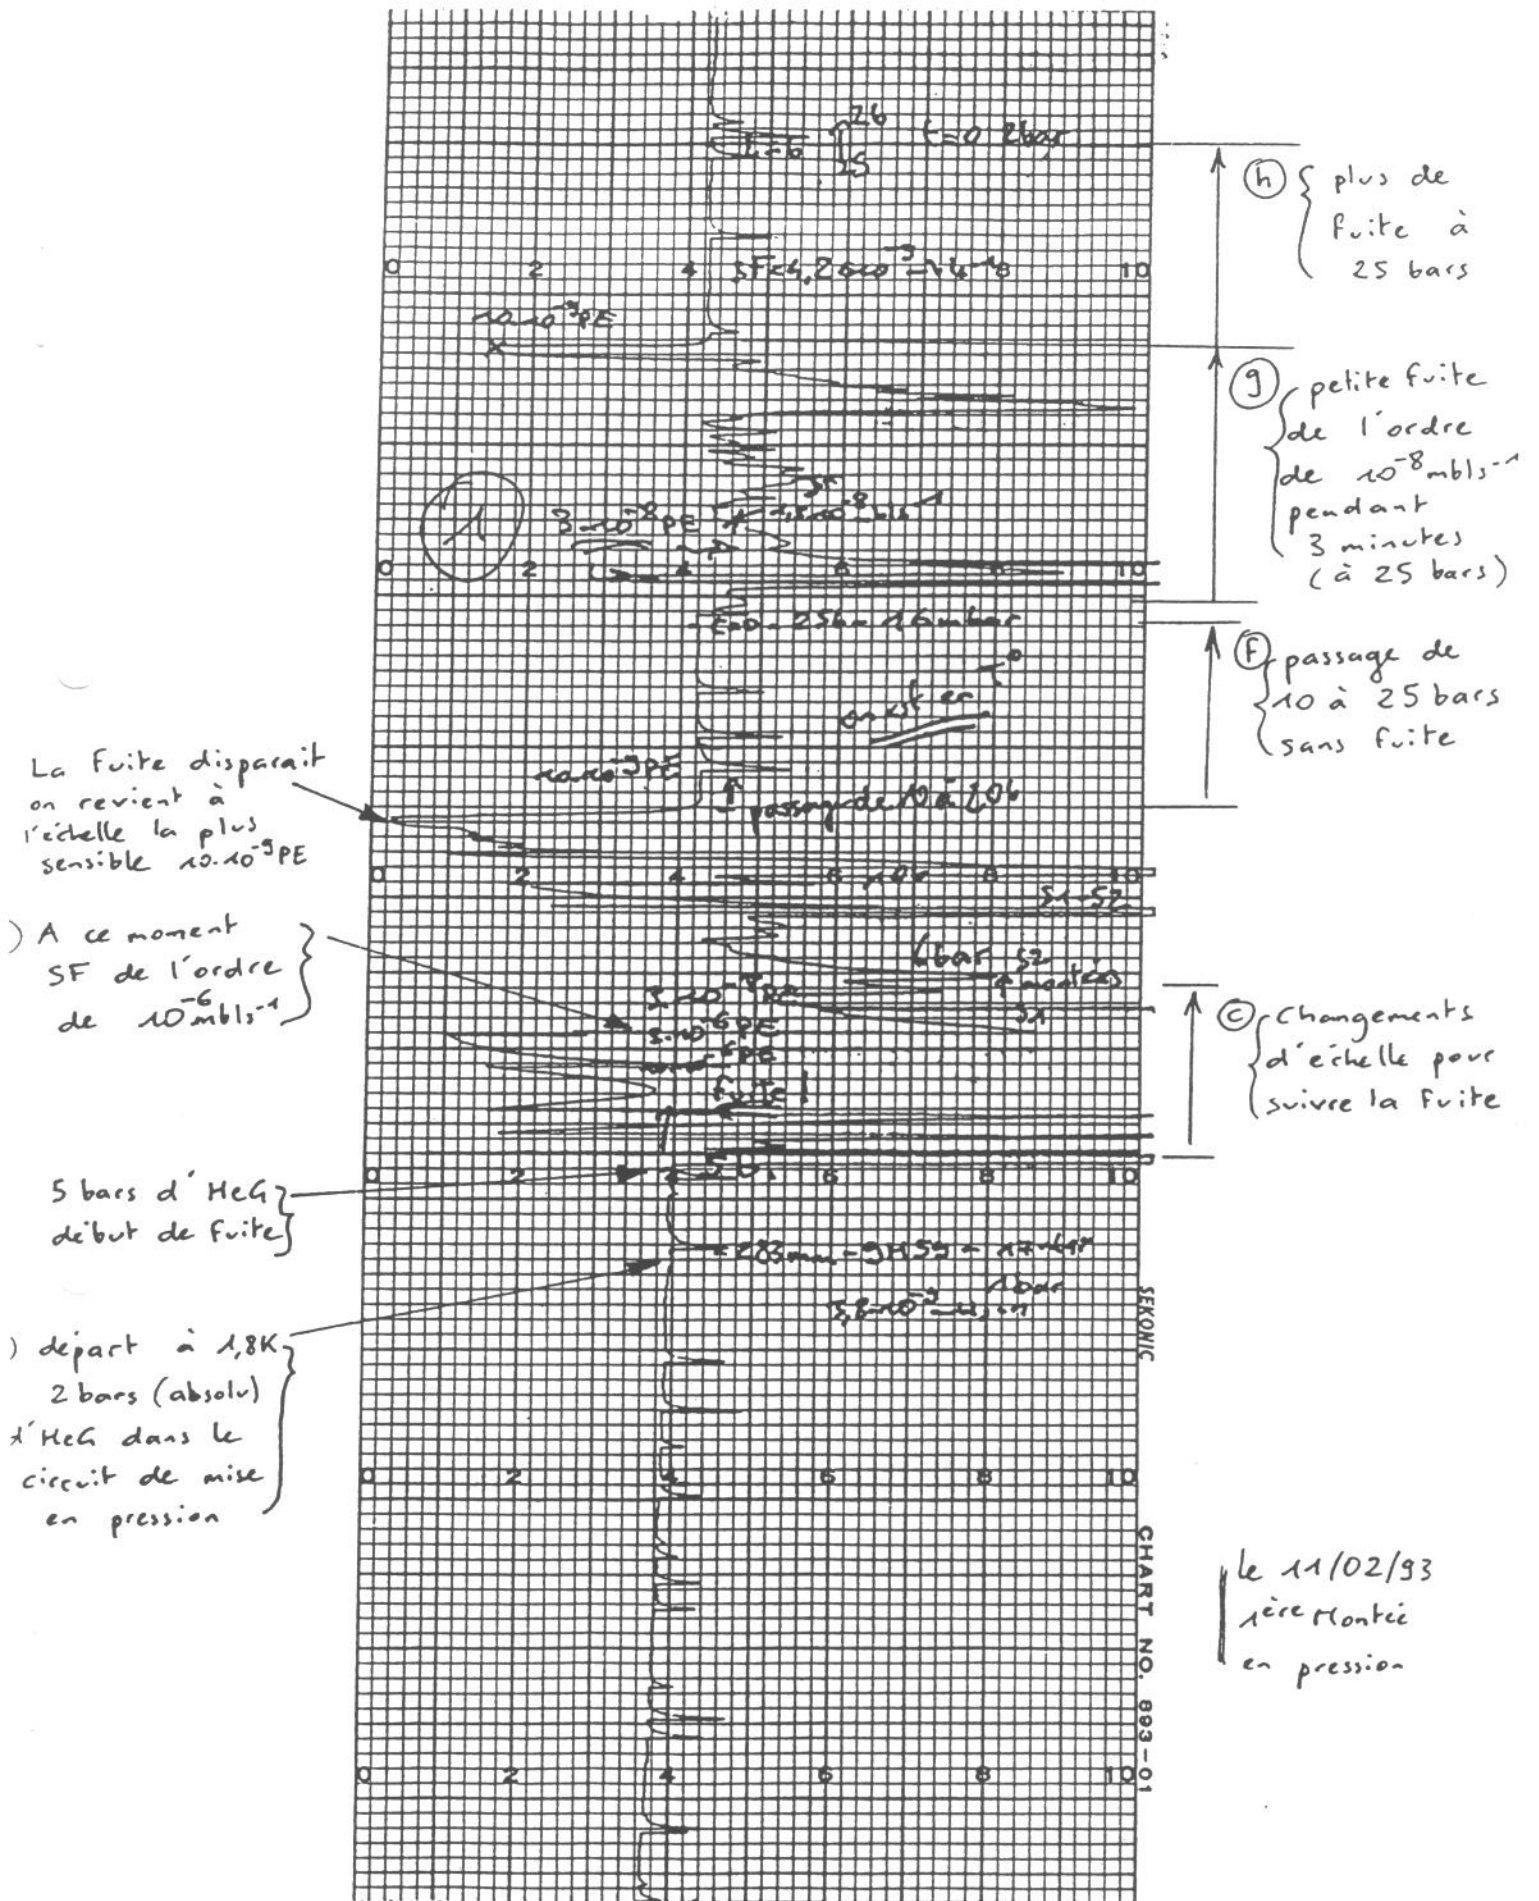 26
t=0 2bar
25
ⓗ plus de
fuite à
25 bars
0 2 4 6 8 10
10.10⁻⁹PE
ⓖ petite fuite
de l'ordre
de 10⁻⁸ mbls⁻¹
pendant
3 minutes
(à 25 bars)
1
3.10⁻⁸PE
SF
1,5.10⁻⁸ mbls⁻¹
0 2 4 6 8 10
t=0 - 25b - 16mbar
on est en T°
ⓕ passage de
10 à 25 bars
sans fuite
10.10⁻⁹PE
passage de 10 à 20b
La fuite disparait
on revient à
l'échelle la plus
sensible 10.10⁻⁹PE
0 2 4 6 8 10
10b
S1-S2
) A ce moment
SF de l'ordre
de 10⁻⁶mbls⁻¹
6bar
S2
montées
S1
3.10⁻⁸PE
3.10⁻⁶PE
fuite!
ⓒ Changements
d'échelle pour
suivre la fuite
0 2 4 6 8 10
5b
5 bars d'HeG
début de fuite
283mm - 9H59 -
1bar
) départ à 1,8K
2 bars (absolu)
d'HeG dans le
circuit de mise
en pression
SEKONIC
0 2 4 6 8 10
CHART NO. 893-01
le 11/02/93
1ère Montée
en pression
0 2 4 6 8 10